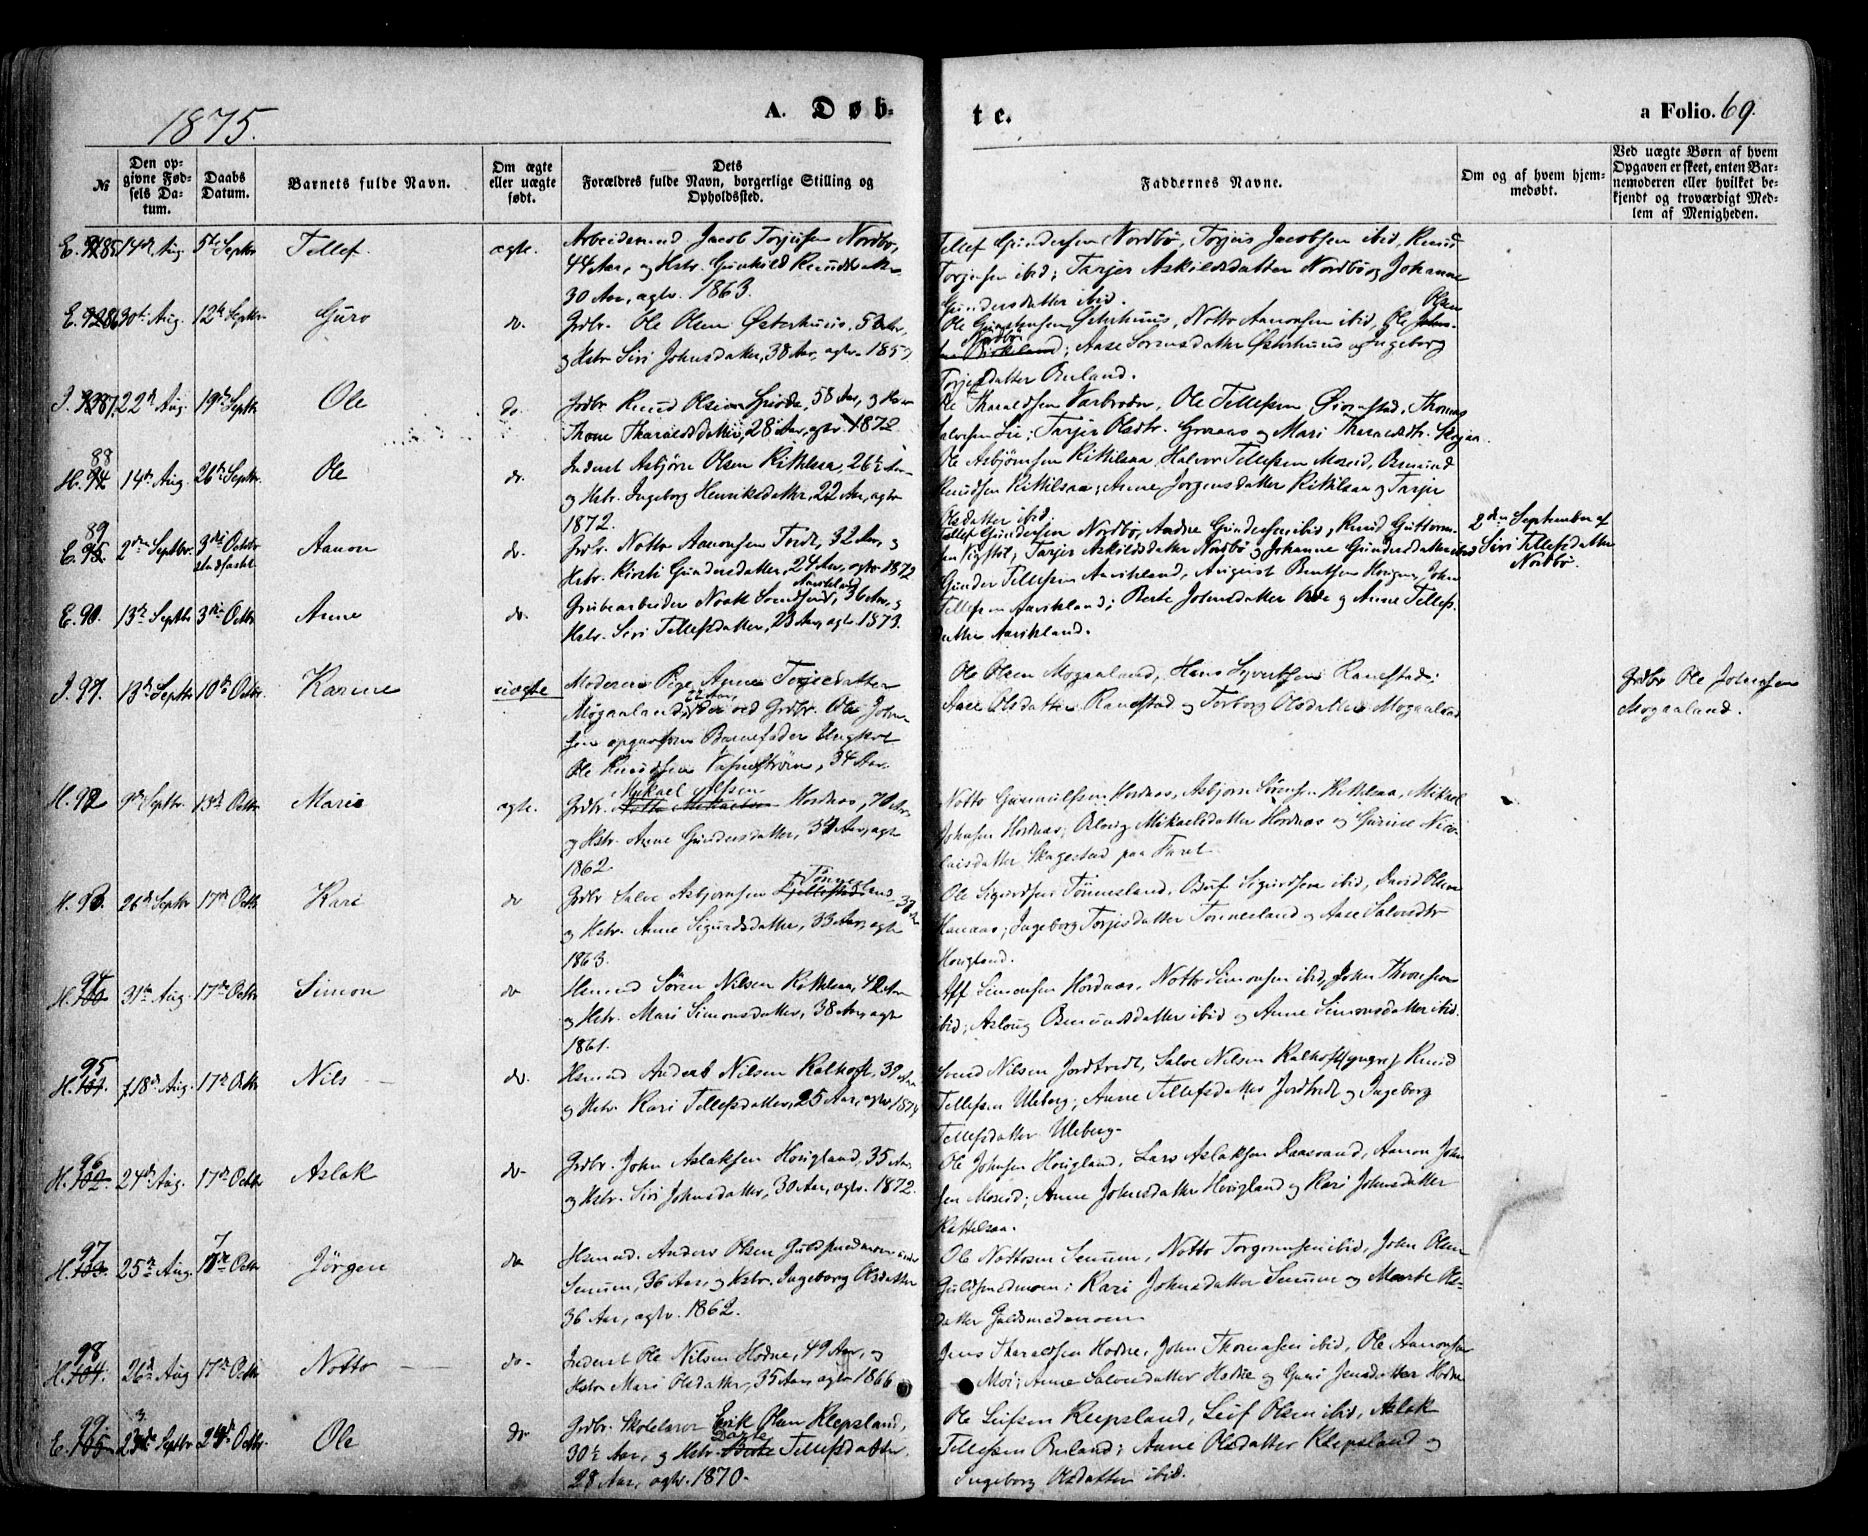 1875.
A. Døb-
te.
a Folio. 69.
№
Den op-
givne Fød-
sels Da-
tum.
Daabs
Datum.
Barnets fulde Navn.
Om ægte
eller uægte
født.
Dets
Forældres fulde Navn, borgerlige Stilling og
Opholdssted.
Faddernes Navne.
Om og af hvem hjem-
medøbt.
Ved uægte Børn af hvem
Opgaven er skeet, enten Bar-
nemoderen eller hvilket be-
kjendt og troværdigt Med-
lem af Menigheden.
E. 85 14de Aug. 5te Septbr Tellef. ægte. Arbeidsmd Jacob Torjusen Nordbø,
44 Aar, og Hstr. Gunhild Knudsdatter
30 Aar, agtv. 1863.
Tellef Gundersen Nordbø, Torjus Jacobsen ibid, Knud
Torjusen ibid; Tarjer Askildsdatter Nordbø og Johanne
Gundersdatter ibid.
E. 86 30te Aug. 12te Septbr. Guro do. Grdbr. Ole Olsen Østerhuus, 50 Aar,
og Hstr. Siri Johnsdatter, 38 Aar, agtv. 185
Ole Østerhuus, Notto Aanonsen ibid, Ole Olsen
Nordbø; Aase Sørensdatter Østerhuus og Ingeborg
Torjesdatter Birkeland.
I. 87. 22de Aug. 19de Septbr. Ole do. Grdbr Knud Olsen 58 Aar, og Hstr
Thone Tharaldsdatter, 28 Aar, agtv. 1872
Ole Tharaldsen Ole Tellefsen Øvrestad, Thomas
Salvesen Lie; Tarjer Olsdtr. og Mari Tharaldsdtr.
88
H. 94 14de Aug. 26de Septbr. Ole do. Inderst Asbjørn Olsen Kittilsaa, 26½ Aar
og Hstr. Ingeborg Henriksdatter, 22 Aar, agtv
1872.
Ole Asbjørnsen Kittilsaa, Halvor Tellefsen Moseid, Osmund
Knudsen Kittilsaa; Anne Jørgensdatter Kittilsaa og Tarjer
Olsdatter ibid.
89
E. 95. 2den Septbr. 3die Octbr Aanon do. Grdbr. Notto Aanonsen 32 Aar, og
Hstr. Kirsti Gundersdatter, 24 Aar, agtv. 1872
Tellef Gundersen Nordbø, Andre Gundersen ibid, Knud Guttorm-
sen Tarjer Askildsdatter Nordbø og Johanne Gundersdatter ibid
2den September af
Siri Tellefsdatter
Nordbø.
E. 90. 13de Septbr 3die Octbr Anne do. Grubearbeider Noak Aavikland, 36 Aar, og
Hstr. Siri Tellefsdatter, 23 Aar, agtv. 1873.
Gunder Tellefsen Aavikland, August Bentsen John
Tellefsen Aavikland; Berte Johnsdatter og Anne Tellefs-
datter Aavikland.
I. 91. 13de Septbr 10de Octbr. Karine uægte Moderen Pige Anne Torjesdatter
Mogaaland, 22 Aar, ved Grdbr. Ole Johns-
sen opgiven Barnefader Ungkarl
Ole Knudsen 34 Aar.
Ole Olsen Mogaaland, Hans Syvertsen Ranestad;
Aase Olsdatter Ranestad og Torborg Olsdatter Mogaaland
Grdbr Ole Johnsen
Mogaaland.
H. 92 9de Septbr. 13de Octbr. Marie ægte. Grdbr. Mykael Alfsen Hordnes, 70 Aar,
og Hstr. Anne Gundersdatter, 34 Aar, agtv
1862.
Notto Hordnes, Asbjørn Sørensen Kittilsaa, Mikael
Johnsen Hordnes; Aslaug Mikaelsdatter Hordnes og Gurine Nico-
laisdatter Skagestad paa
H. 93. 26de Septbr 17de Octbr. Kari do Grdbr Salve Asbjørnsen Tønnesland
og Hstr. Anne Sigurdsdatter, 33 Aar, agtv
1863.
Ole Sigurdsen Tønnesland, Sigurdsen ibid, David Olsen
Hanaas; Ingeborg Torjesdatter Tønnesland og Aase Salvesdtr
Hougland.
94
H. 100 31te Aug. 17de Octbr. Simon do Hsmnd Søren Nilsen Kittilsaa, 42 Aar
og Hstr. Mari Simonsdatter, 38 Aar, agtv
1861.
Alf Simonsen Hordnes, Notto Simonsen ibid, John Thomsen
ibid; Aslaug Osmundsdatter ibid og Anne Simonsdatter ibid.
95
H. 101. 18de Aug. 17de Octbr Nils do. Hsmnd Anders Nilsen Kalhoft, 39 Aar
og Hstr Kari Tellefsdatter, 25 Aar, agtv. 1874
Svend Nilsen Salve Nilsen Kalhoft (yngre) Knud
Tellefsen Uleberg; Anne Tellefsdatter og Ingeborg
Tellefsdatter Uleberg.
96
H. 102. 24de Aug. 17de Octbr Aslak do. Grdbr. John Aslaksen Hougland, 35 Aar
og Hstr. Siri Johnsdatter, 30 Aar, agtv. 1872.
Ole Johnsen Hougland, Lars Aslaksen Aanon John-
sen Moseid; Anne Johnsdatter Hougland og Kari Johnsdatter
Kittelsaa.
97
H. 103. 25de Aug. 17de Octbr. Jørgen do Hsmnd. Anders Olsen Guldsmedmoen under
Senum, 36 Aar, og Hstr. Ingeborg Olsdatter
36 Aar, agtv. 1862.
Ole Nottosen Senum, Notto ibid, John Olsen
Guldsmedmoen; Kari Johnsdatter Senum og Marte Ols-
datter Guldsmedmoen
98
H. 104. 26de Aug 17de Octbr Notto do. Inderst Ole Nilsen Hodne, 49 Aar, og
Hstr Mari Olsdatter, 35 Aar, agtv 1866
Jens Tharaldsen Hodne, John Thomasen ibid, Ole Aanonsen
Moi; Anne Salvesdatter Hodne og Guri Jensdatter Hodne
99
E. 105 23de Septbr 24de Octbr. Ole do Grdbr. Skolelærer Erik Olsen Klepsland,
30½ Aar, og Hstr. Dorte Tellefsdatter
28 Aar, agtv. 1870.
Ole Leifsen Klepsland, Leif Olsen ibid, Aslak
Tellefsen Birkeland; Anne Olsdatter Klepsland og
Ingeborg Olsdatter ibid.